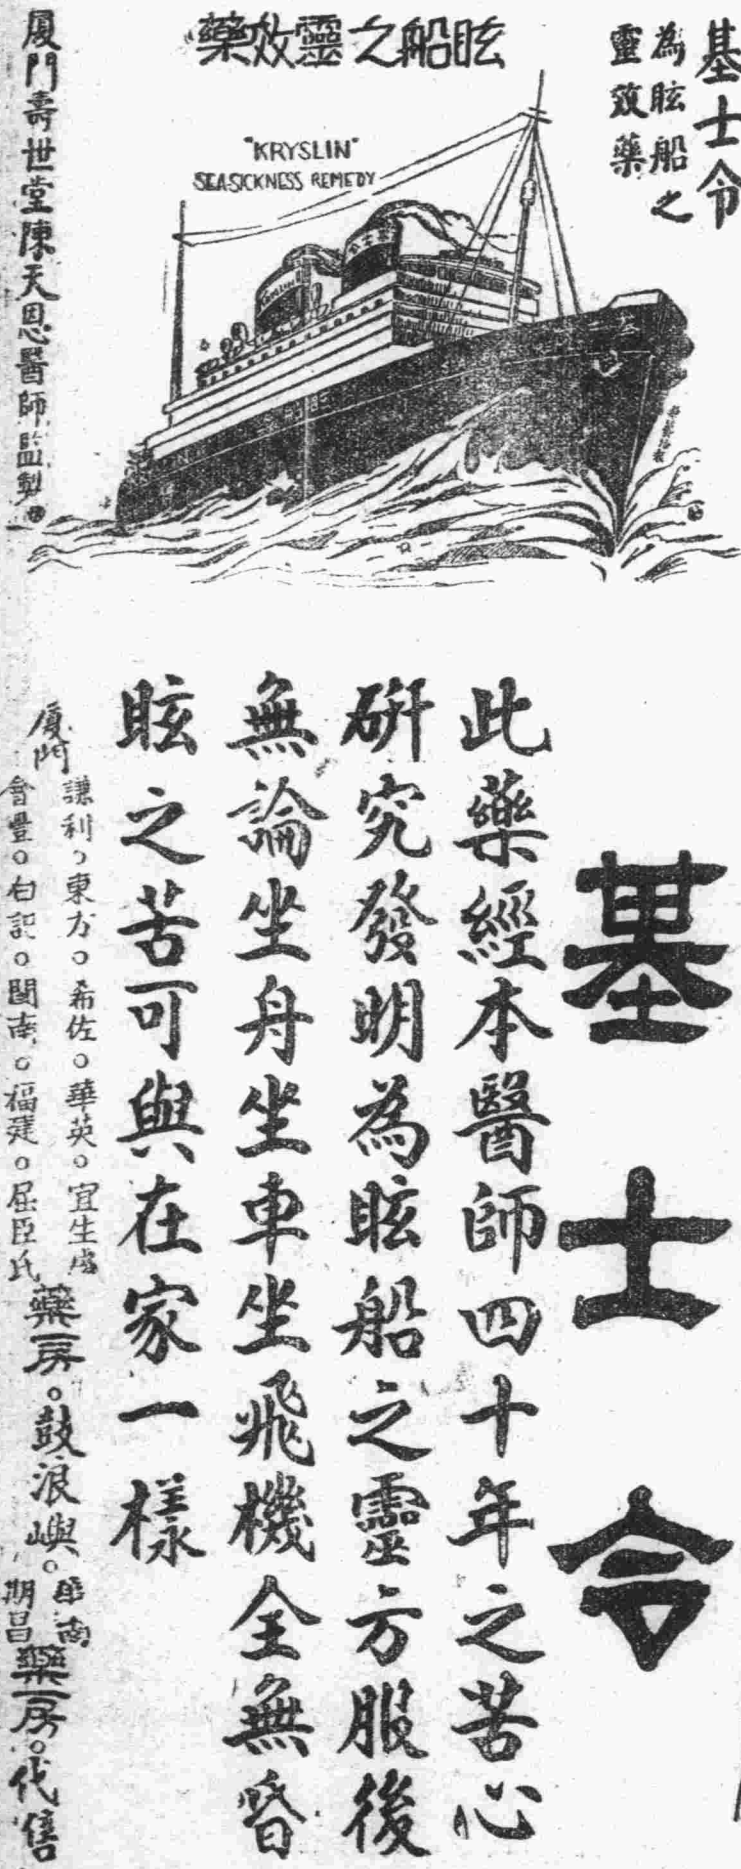 基士令
為眩船之
靈效藥
眩船之靈效藥
"KRYSLIN"
SEASICKNESS REMEDY
KRYSLIN
厦門壽世堂陳天恩醫師監製
基士令
此藥經本醫師四十年之苦心
研究發明為眩船之靈方服後
無論坐舟坐車坐飛機全無昏
眩之苦可與在家一樣
厦門
謙利。東方。希佐。華英。宜生
會豐。白記。閩南。福建。屈臣氏
藥房。鼓浪嶼。
華南
期昌
藥房。代售